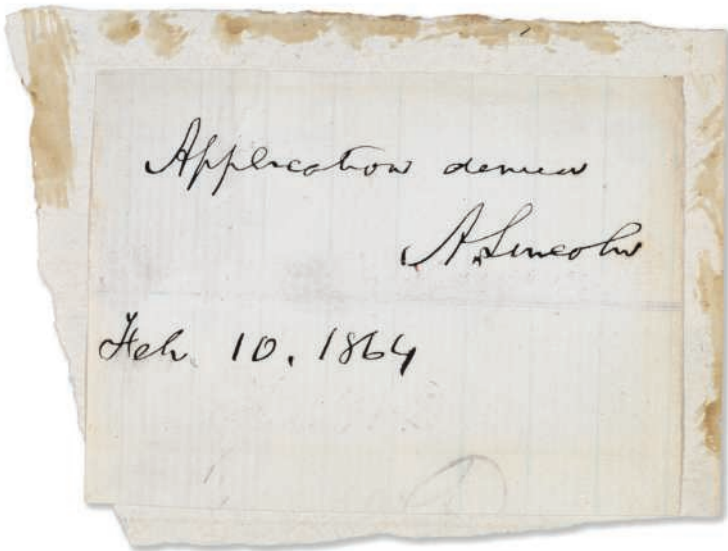 Application denied
A. Lincoln
Feb. 10. 1864